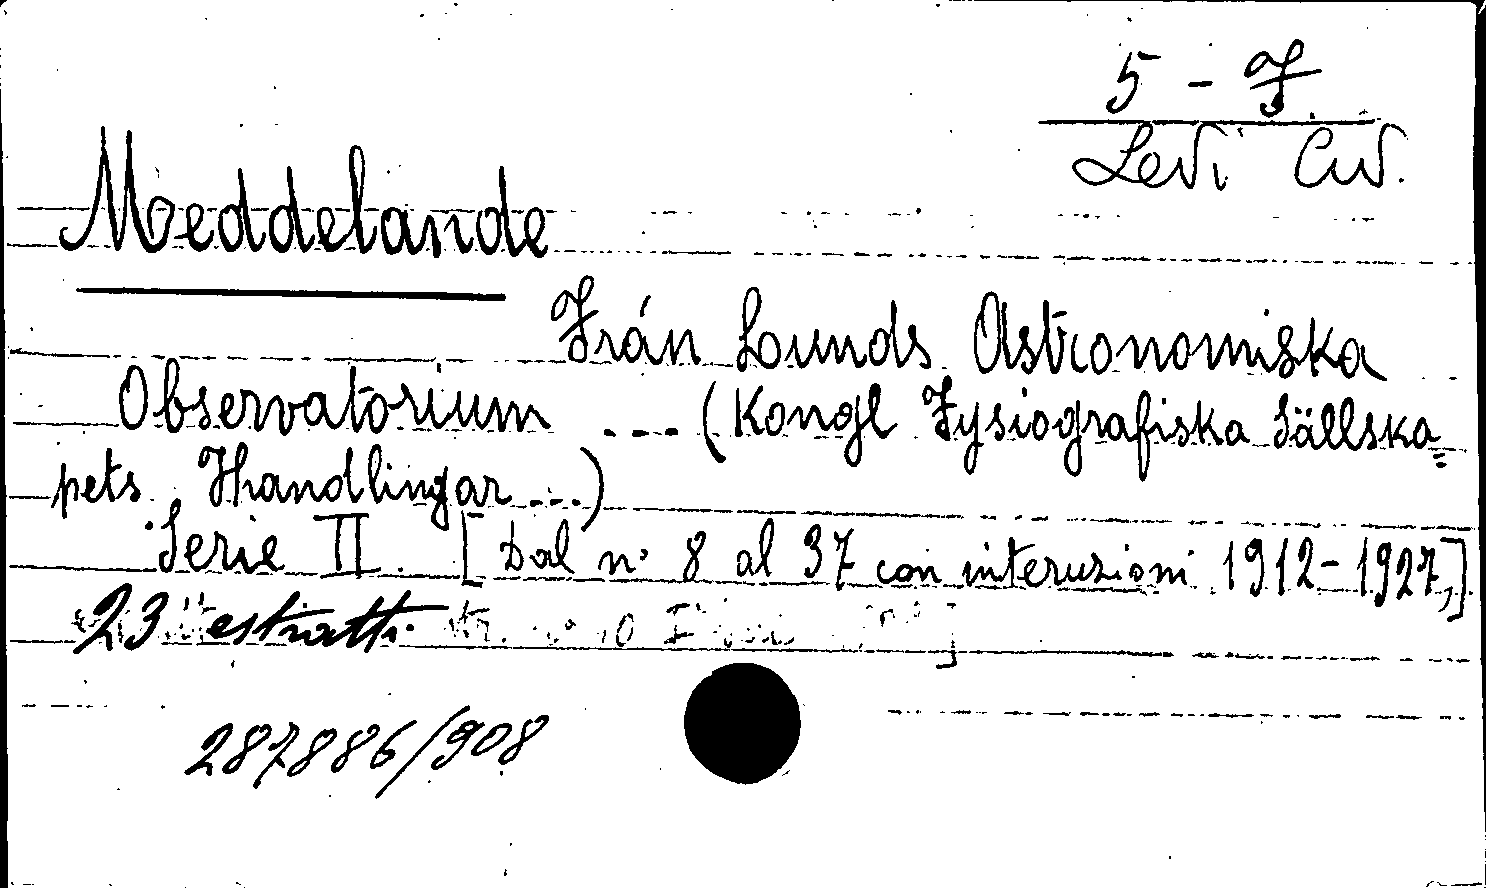 5 - J
Levi Civ.
Meddelande
Från Lunds Astronomiska
Observatorium ... (Kongl Fysiografiska Sällska=
pets Handlingar ...)
Serie II. [Dal n° 8 al 37 con interuzioni 1912-1927,]
23 estratti
287886/908